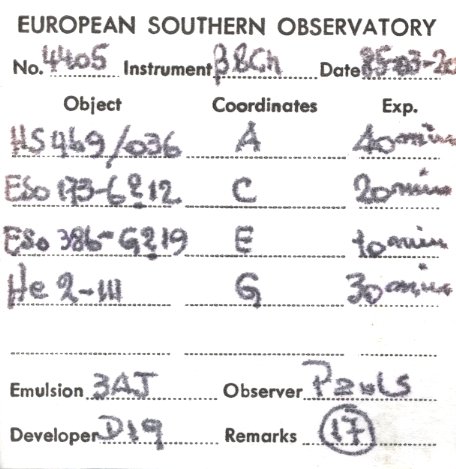 EUROPEAN SOUTHERN OBSERVATORY
No. 4405 Instrument BBCh Date 85-03-20
Object Coordinates Exp.
HS 469/036 A 40 min
ESO 173-6?12 C 20 min
ESO 386-G?19 E 10 min
He 2-111 G 30 min
Emulsion 3AJ Observer Pauls
Developer D19 Remarks 17